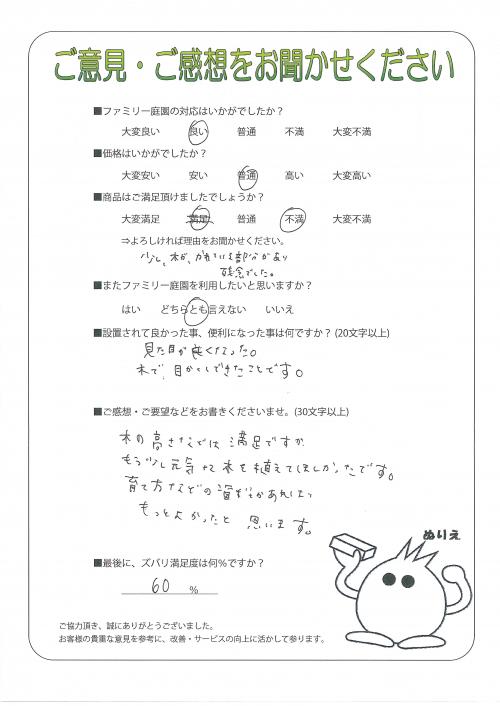 ご意見・ご感想をお聞かせください
■ファミリー庭園の対応はいかがでしたか？
大変良い 良い 普通 不満 大変不満
■価格はいかがでしたか？
大変安い 安い 普通 高い 大変高い
■商品はご満足頂けましたでしょうか？
大変満足 満足 普通 不満 大変不満
⇒よろしければ理由をお聞かせください。
少し、木が、かれている部分があり
残念でした。
■またファミリー庭園を利用したいと思いますか？
はい どちらとも言えない いいえ
■設置されて良かった事、便利になった事は何ですか？(20文字以上)
見た目が良くなった。
木で、目かくしできたことです。
■ご感想・ご要望などをお書きくださいませ。(30文字以上)
木の高さなどは満足ですが
もう少し元気な木を植えてほしかったです。
育て方などの資料があれば
もっとよかったと思います。
ぬりえ
■最後に、ズバリ満足度は何％ですか？
60 %
ご協力頂き、誠にありがとうございました。
お客様の貴重な意見を参考に、改善・サービスの向上に活かして参ります。